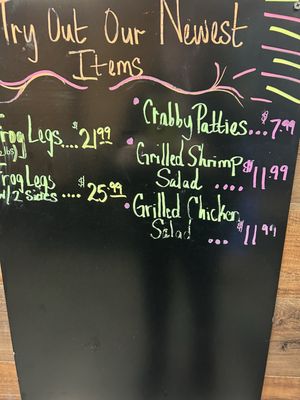 Try Out Our Newest
Items
Frog Legs
.... $21.99
Frog Legs
w/2 Sides .... $25.99
• Crabby Patties... $7.99
• Grilled Shrimp
Salad .... $11.99
• Grilled Chicken
Salad ... $11.99